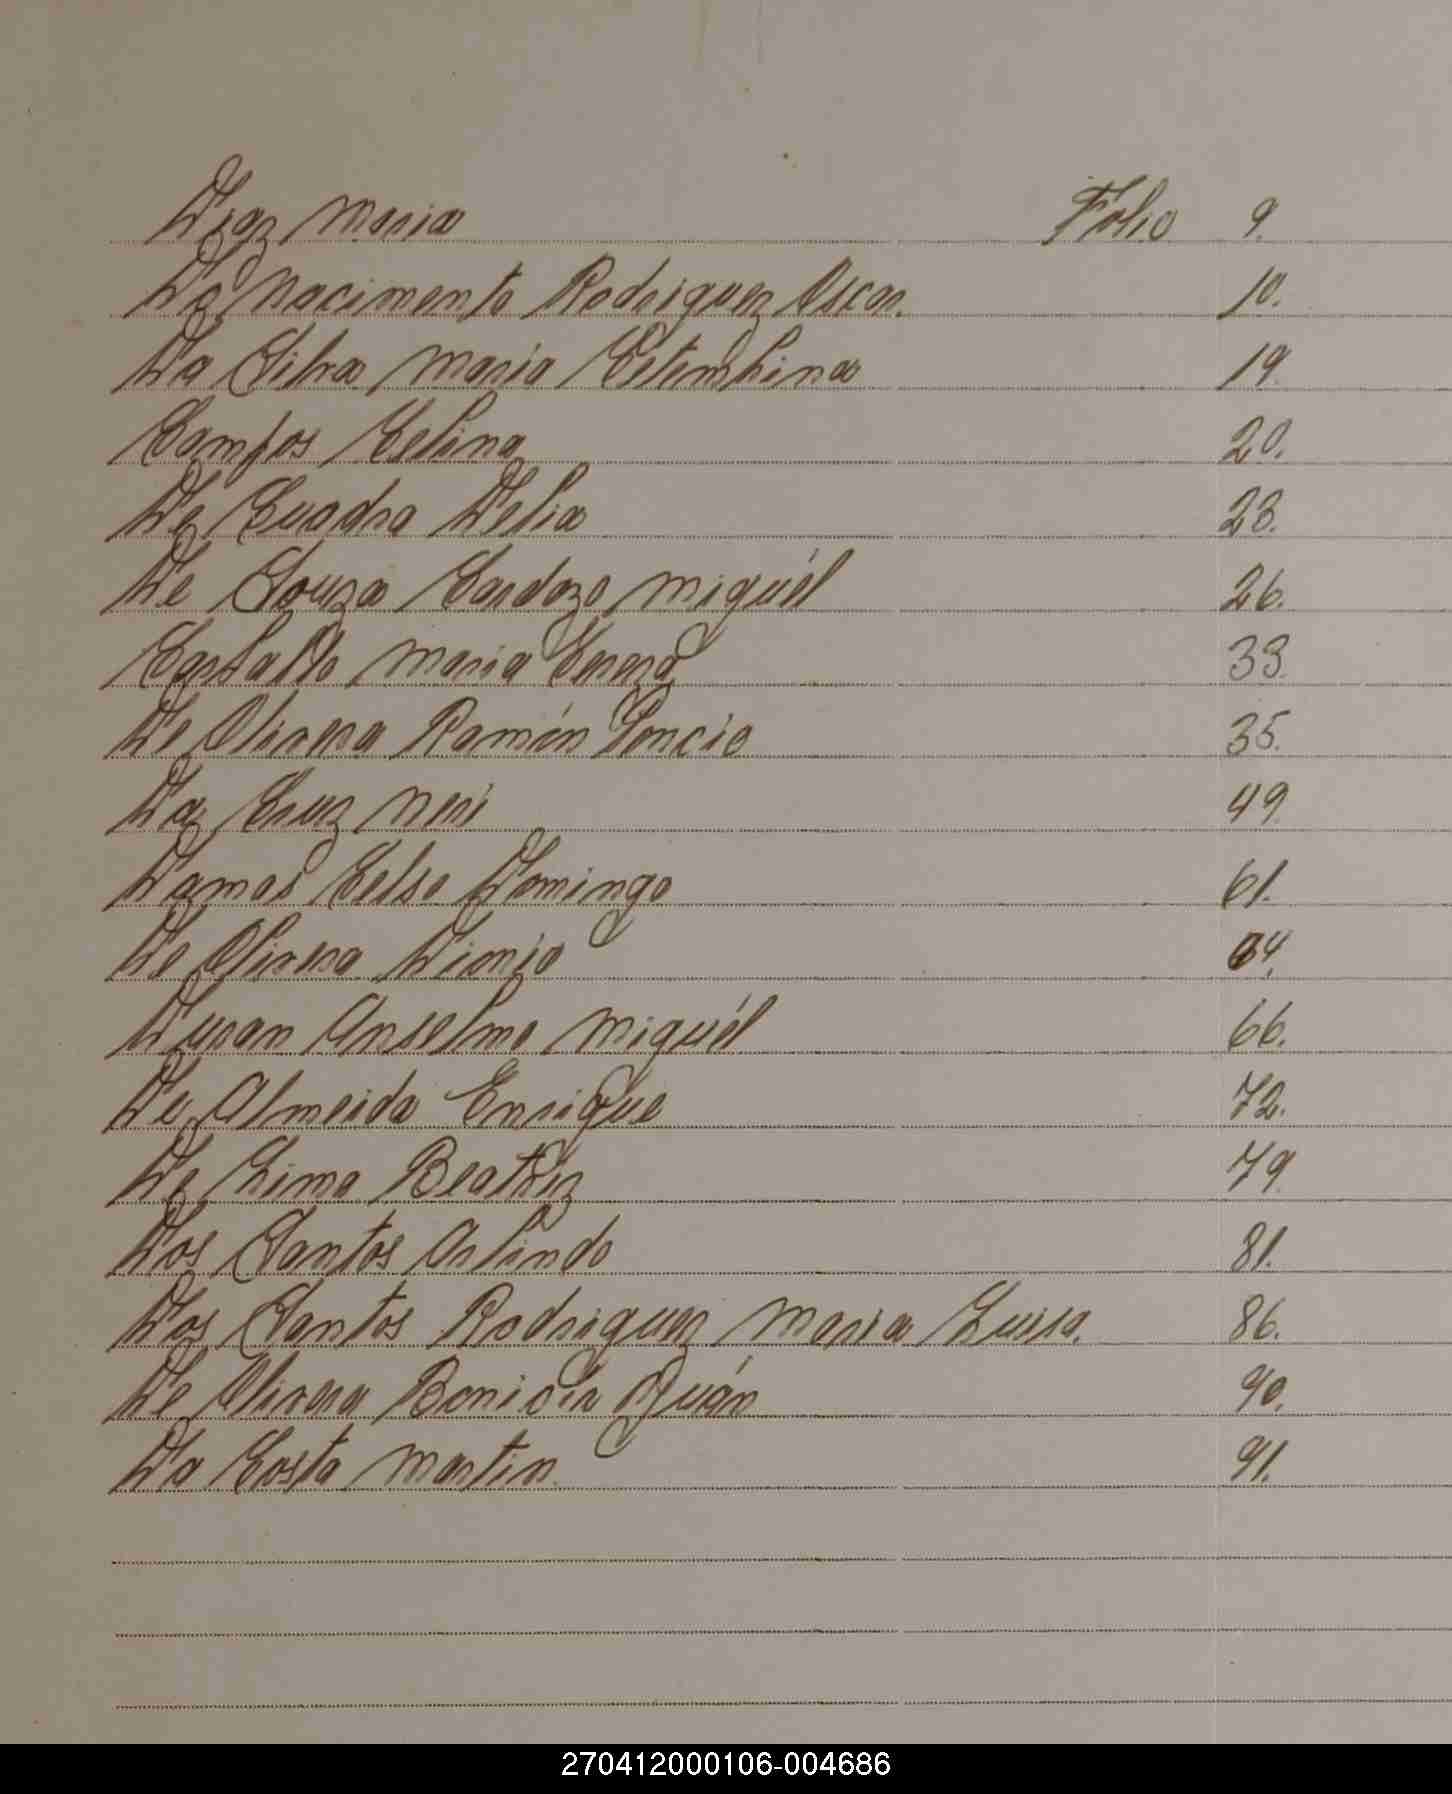 Diaz Maria Folio 9.
Da Nacimento Rodriguez Oscar. 10.
Da Silva Maria 19.
Campos Celina 20.
De Cuadra Delia 23.
De Souza Cardozo Miguél 26.
Maria Teresa 33.
De Olivera Ramón Poncio 35.
Da Cruz Neri 49.
Damas Celso Domingo 61.
De Olivera Dionijo 64.
Duran Anselmo Miguél 66.
De Almeida Enrique 72.
De Lima Beatriz 79.
Dos Santos Arlindo 81.
Dos Santos Rodriguez Maria Luisa. 86.
De Olivera Juán 90.
Da Costa Martin. 91.
270412000106-004686